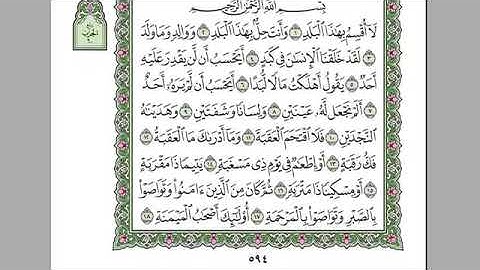 بِسْمِ اللَّهِ الرَّحْمَٰنِ الرَّحِيمِ
لَا أُقْسِمُ بِهَٰذَا الْبَلَدِ ١ وَأَنتَ حِلٌّ بِهَٰذَا الْبَلَدِ ٢ وَوَالِدٍ وَمَا وَلَدَ
٣ لَقَدْ خَلَقْنَا الْإِنسَانَ فِي كَبَدٍ ٤ أَيَحْسَبُ أَن لَّن يَقْدِرَ عَلَيْهِ
أَحَدٌ ٥ يَقُولُ أَهْلَكْتُ مَالًا لُّبَدًا ٦ أَيَحْسَبُ أَن لَّمْ يَرَهُ أَحَدٌ
٧ أَلَمْ نَجْعَل لَّهُ عَيْنَيْنِ ٨ وَلِسَانًا وَشَفَتَيْنِ ٩ وَهَدَيْنَاهُ
النَّجْدَيْنِ ١٠ فَلَا اقْتَحَمَ الْعَقَبَةَ ١١ وَمَا أَدْرَاكَ مَا الْعَقَبَةُ ١٢
فَكُّ رَقَبَةٍ ١٣ أَوْ إِطْعَامٌ فِي يَوْمٍ ذِي مَسْغَبَةٍ ١٤ يَتِيمًا ذَا مَقْرَبَةٍ
١٥ أَوْ مِسْكِينًا ذَا مَتْرَبَةٍ ١٦ ثُمَّ كَانَ مِنَ الَّذِينَ آمَنُوا وَتَوَاصَوْا
بِالصَّبْرِ وَتَوَاصَوْا بِالْمَرْحَمَةِ ١٧ أُولَٰئِكَ أَصْحَابُ الْمَيْمَنَةِ ١٨
٥٩٤